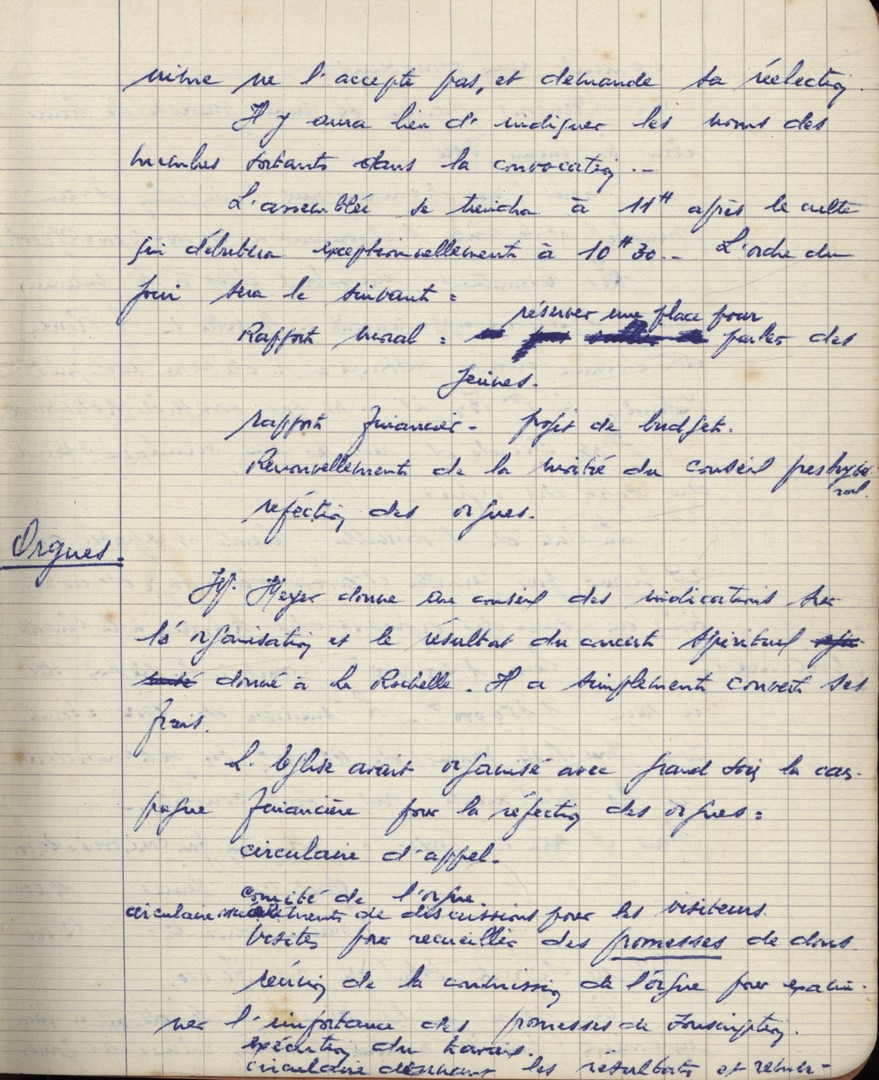 même ne l'accepte pas, et demande sa réélection.
Il y aura lieu d'indiquer les noms des
membres sortants dans la convocation.--
L'assemblée se tiendra à 11H après le culte
qui débutera exceptionnellement à 10H30.-- L'ordre du
jour sera le suivant :
réserver une place pour
Rapport moral : parler des
jeunes.
rapport financier - projet de budget.
Renouvellement de la moitié du conseil presbyté
ral.
réfection des orgues.
Orgues.
M. Meyer donne au conseil des indications sur
l'organisation et le résultat du concert spirituel
donné à La Rochelle. Il a simplement couvert ses
frais.
L'Eglise avait organisé avec grand soin la cam-
pagne financière pour la réfection des orgues :
circulaire d'appel.
comité de l'orgue
circulaire éléments de discussions pour les visiteurs.
Visites pour recueillir des promesses de dons.
réunion de la commission de l'orgue pour exami-
ner l'importance des promesses de souscription.
exécution du travail.
circulaire donnant les résultats et remer-